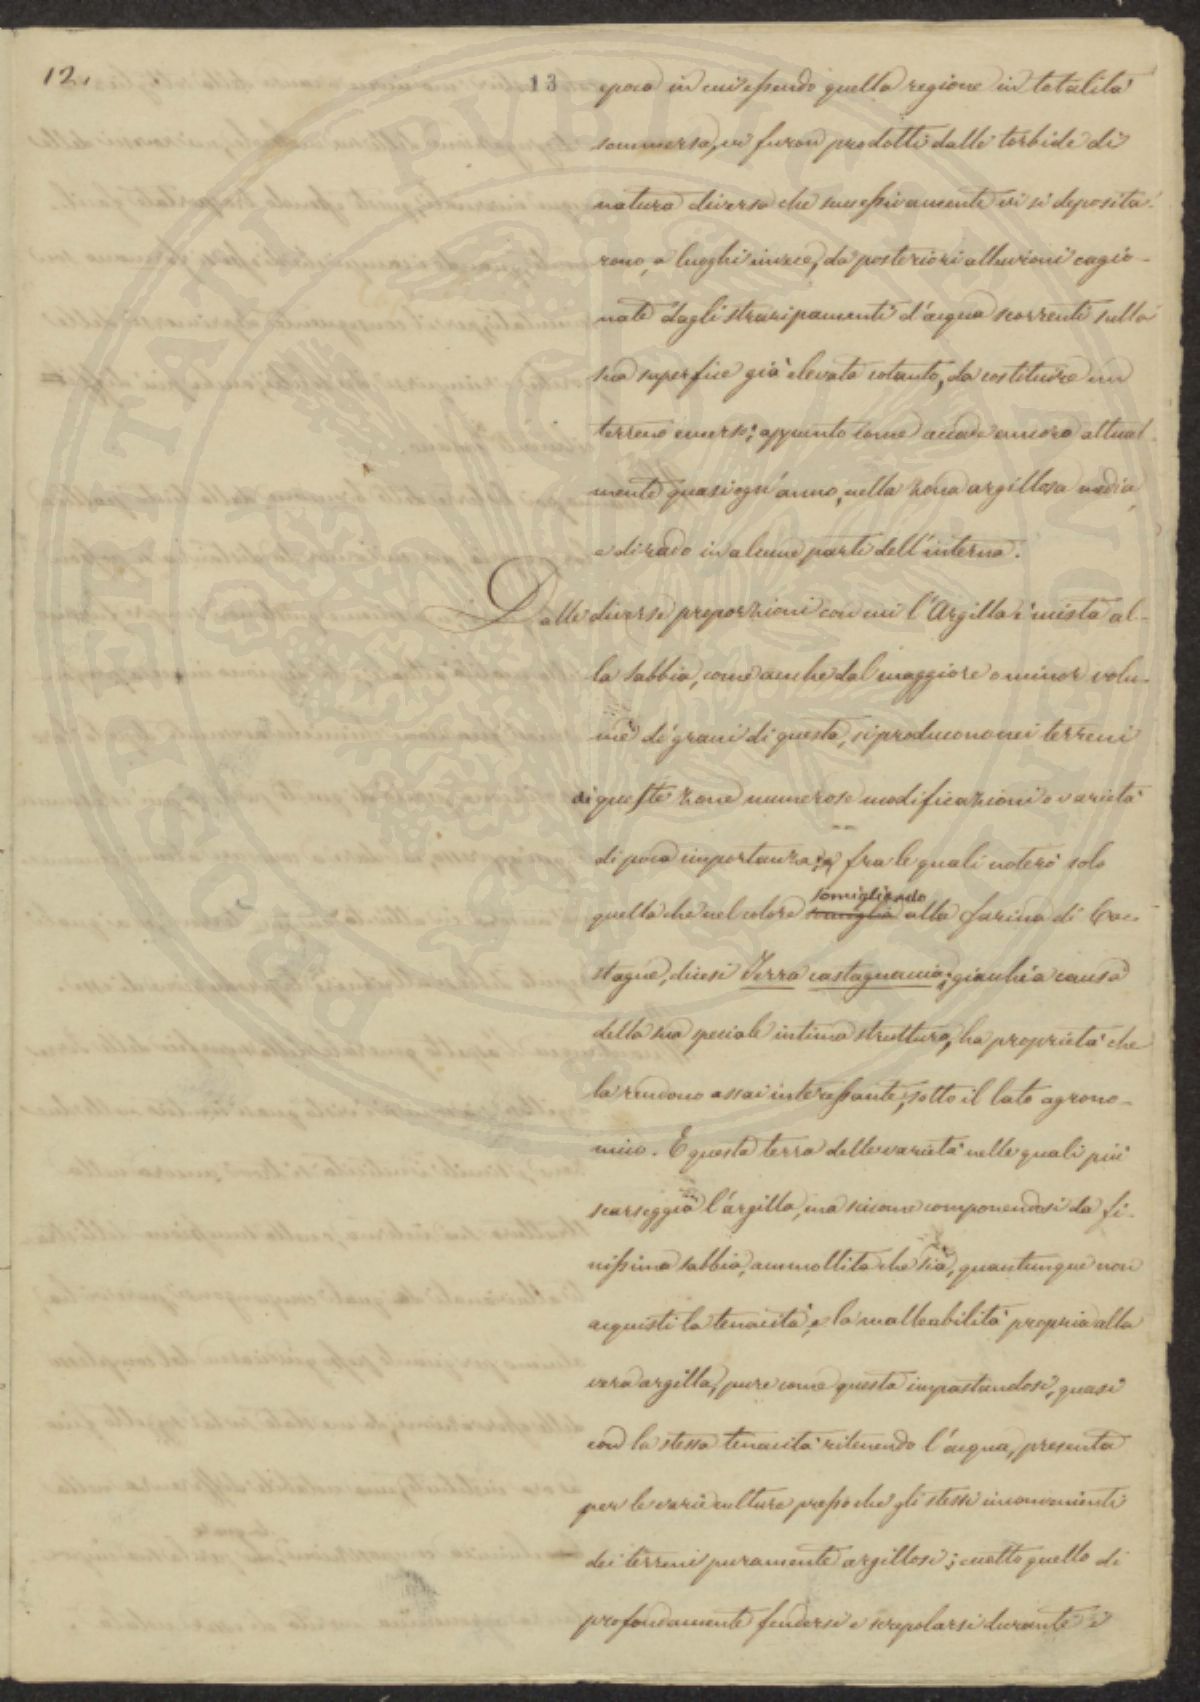 12.
13
epoca in cui essendo quella regione in totalità
sommersa, vi furon prodotti dalle torbide di
natura diversa che successivamente vi si deposita-
rono, o luoghi invece, da posteriori alluvioni cagio-
nate dagli straripamenti d'acqua scorrenti sulla
sua superfice già elevata cotanto, da costituire un
terreno emerso; appunto come accade ancora attual-
mente quasi ogn'anno, nella zona argillosa media,
e di rado in alcune parti dell'interna.
Dalle diverse proporzioni con cui l'Argilla è mista al-
la sabbia, come anche dal maggiore o minor volu-
me di grani di questa, si producono nei terreni
di queste zone numerose modificazioni e varietà
di poca importanza; fra le quali noterò solo
somigliando
quella che nel colore somiglia alla farina di Ca-
stagne, dicesi Terra castagnania; giacchè a causa
della sua speciale intima struttura, ha proprietà che
la rendono assai interessante, sotto il lato agrono-
mico. È questa terra delle varietà nelle quali più
scarseggia l'argilla, ma siccome componendosi da fi-
nissima sabbia, ammollita che sia, quantunque non
acquisti la tenacità, e la malleabilità propria alla
vera argilla, pure come questa impastandosi, quasi
con la stessa tenacità ritenendo l'acqua, presenta
per le varie culture presso che gli stessi inconvenienti
dei terreni puramente argillosi; quello di
profondamente fendersi e screpolarsi durante i
BIBLIOTECA PUBLICA